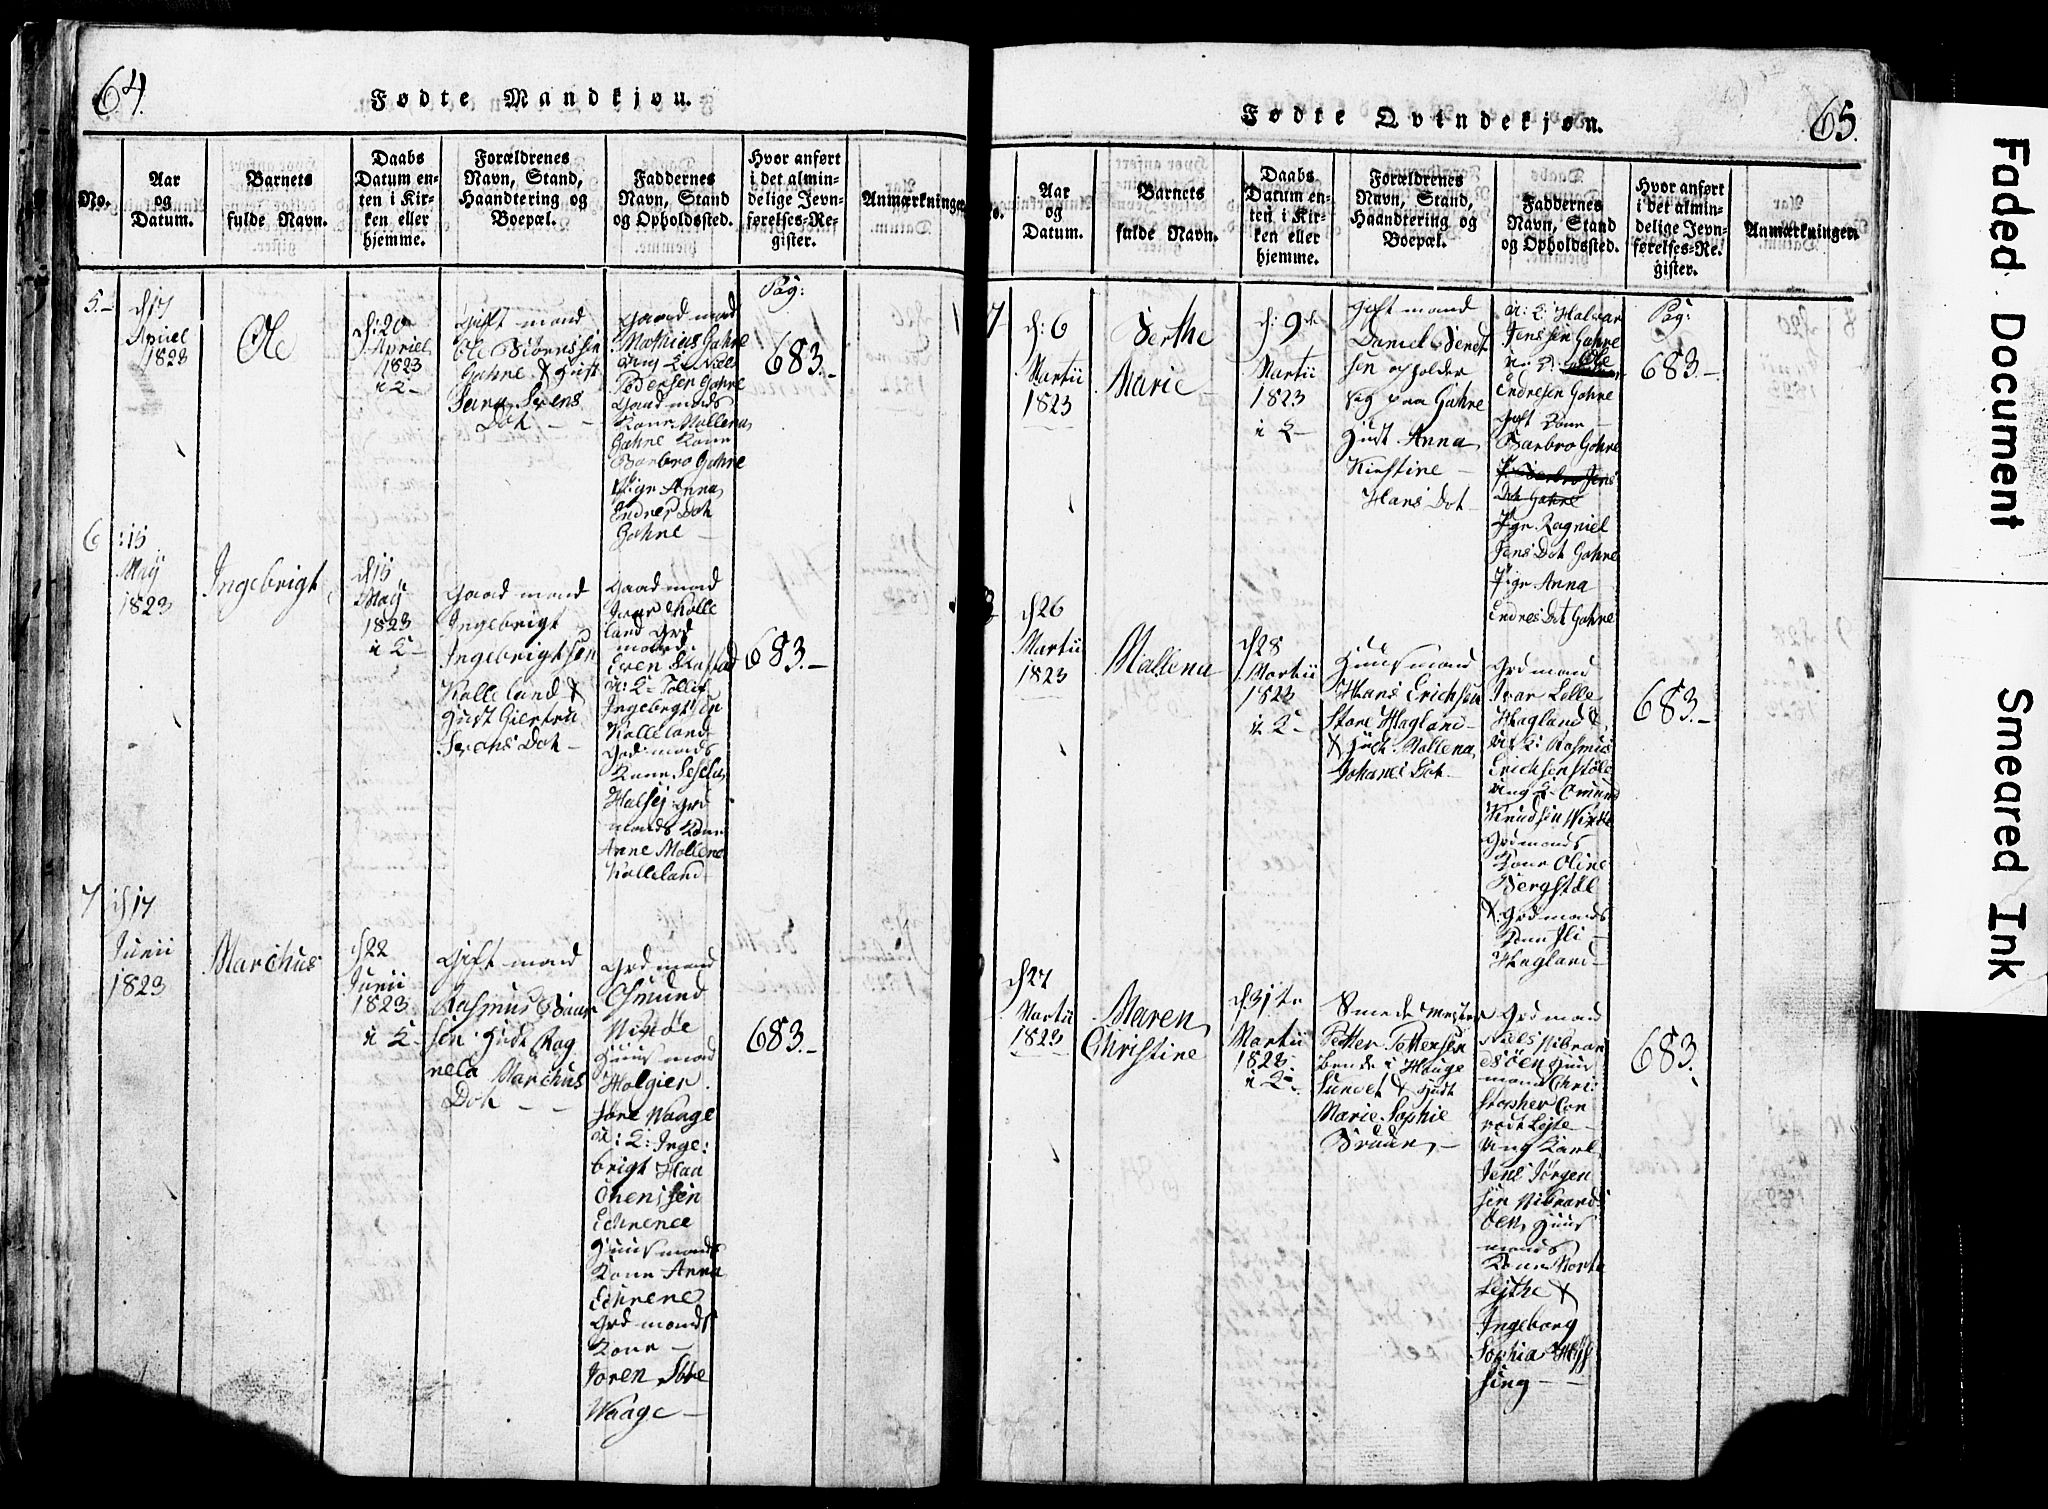 64.
Fødte Mandkjøn.
No.
Aar
og
Datum.
Barnets
fulde Navn.
Daabs
Datum en-
ten i Kir-
ken eller
hjemme.
Forældrenes
Navn, Stand,
Haandtering og
Boepæl.
Faddernes
Navn, Stand
og Opholdssted.
Hvor anført
i det almin-
delige Jevn-
førelses-Re-
gister.
Anmærkninger.
5.-
d 17
Apriel
1823
Ole
d: 20
Apriel
1823
i K-
Gift mand
Ole Biørnssen
Gahne & Hust
Dot
Gaard mand
Mathias Gahne
ung K Niels
Pedersen Gahne
Gaard mands
Kone Mallena
Gahne Kone
Barbro Gahne
Pige Anna
Endres Dot
Gahne -
Pag:
683.-
6
:15
May
1823
Ingebrigt
d 15
May
1823
i K-
Gaard mand
Ingebrigt
Ingebrigtsen
Kolleland &
Hust Giertru
Svens Dot-
Gaard mand
Ivar Kolle
land Grd
mand
Sven
u: K- Tollif
Ingebrigtsen
Kolleland
Grd mands
Kone Sesela
Grd
mands Kone
Anne Mallene
Kolleland
683.-
7
d 17
Junii
1823
Marchus
d 22
Junii
1823
i K-
Gift mand
Rasmus
sen Hust Rag
nela Marchus
Dot - -
Grd mand
Osmund
Huus mand
Holgier
Store Waage
u: K: Inge:
brigt Haa
Echrenee
Huus mands
Kone Anna
Echrene
Grd mands
Kone -
Joren Store
Waage -
683.-
65.
Fødte Qvindekjøn.
No.
Aar
og
Datum.
Barnets
fulde Navn.
Daabs
Datum en-
ten i Kir-
ken eller
hjemme.
Forældrenes
Navn, Stand,
Haandtering og
Boepæl.
Faddernes
Navn, Stand
og Opholdssted.
Hvor anført
i det almin-
delige Jevn-
førelses-Re-
gister.
Anmærkninger.
7
d: 6
Martii
1823
Berthe
Marie -
d: 9de
Martii
1823
i K-
Gift mand
Daniel Bendt
sen opholder
sig paa Gahne
Hust Anna
Kirstine -
Hans Dot -
u: K: Halvar
Jenssen Gahne
u: K: Ole
Endresen Gahne
Gift Kone -
Barbro Gahne
Barbro Jens
Dot Gahne
Pige Ragniel
Jens Dot Gahne
Pige Anna
Endres Dot Gahne
Pag:
683.-
d 26
Martii
1823
Mallena
d 28
Martii
1823
i K-
Huus mand
Hans Erichsen
Store Hagland
& Hust. Mallena
Johanes Dot -
Grd mand
Ivar Lille
Hagland &
u: K: Rasmus
Erichsen
ung K- Omund
Knudsen
Grd mands
Kone Oline
Bergstøl
& Grd mands
Kone Eli -
Hagland -
683.-
d 27
Martii
1823
Maren
Christine
d. 31te
Martii
1823
i K-
Smede mester
Petter Pettersen
boende i Hauge
sundet & Hust
Marie Sophie
Bruun -
Grd mand
Niels
Huus
mand Chri:
stopher Con
radt
ung Karl
Jens Jørgen
sen
Huus
mands
Kone
&
Ingeborg
Sophia
sing - -
683.-
Faded Document
Smeared Ink